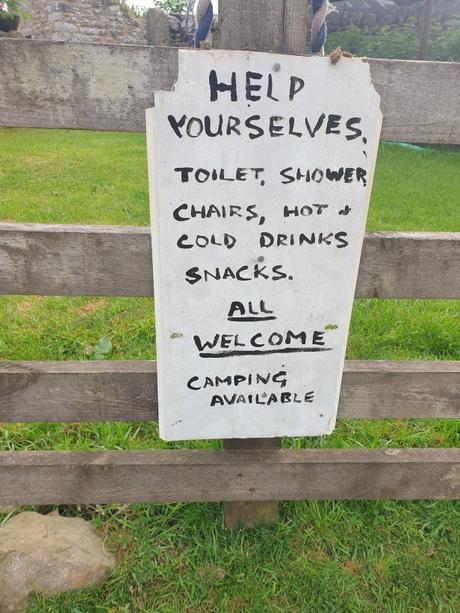 HELP
YOURSELVES.
TOILET, SHOWER
CHAIRS, HOT &
COLD DRINKS
SNACKS.
ALL
WELCOME
CAMPING
AVAILABLE